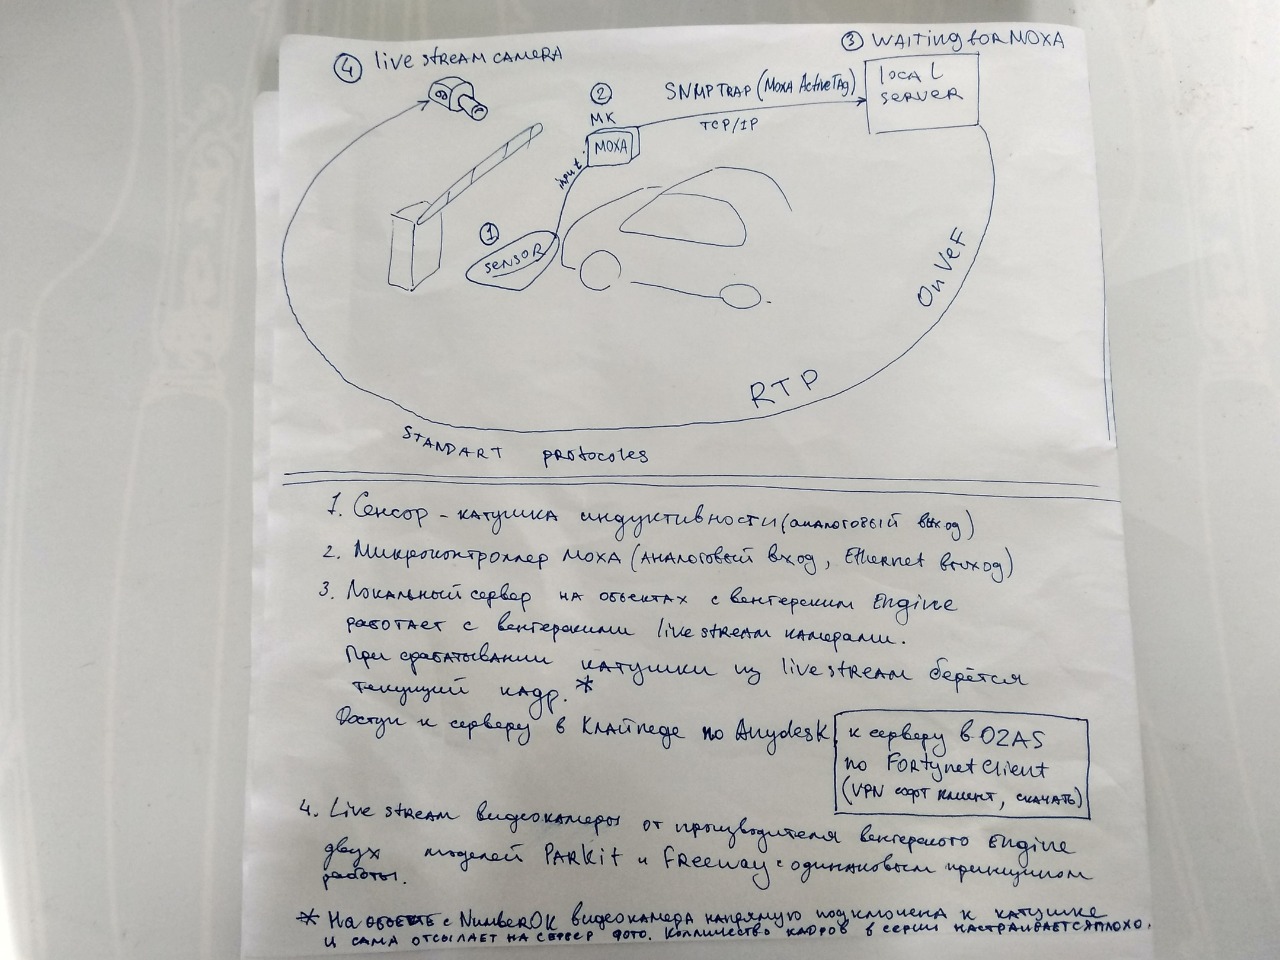 ④ live stream camera
③ waiting for MOXA
②
MK
MOXA
SNMP TRAP (Moxa ActiveTag)
TCP/IP
local
server
input
①
sensor
OnVeF
RTP
STANDART protocoles
1. Сенсор - катушка индуктивности (аналоговый выход)
2. Микроконтроллер MOXA (аналоговый вход, Ethernet выход)
3. Локальный сервер на объектах с венгерским Engine
работает с венгерскими live stream камерами.
При срабатывании катушки из live stream берётся
текущий кадр. *
Доступ к серверу в Клайпеде по Anydesk,
к серверу в OZAS
по Fortynet Client
(VPN софт клиент, скачать)
4. Live stream видеокамеры от производителя венгерского Engine
двух моделей PARKit и Freeway с одинаковым принципом
работы.
* На объекте с NumberOK видеокамера напрямую подключена к катушке
и сама отсылает на сервер фото. Колличество кадров в серии настраивается плохо.